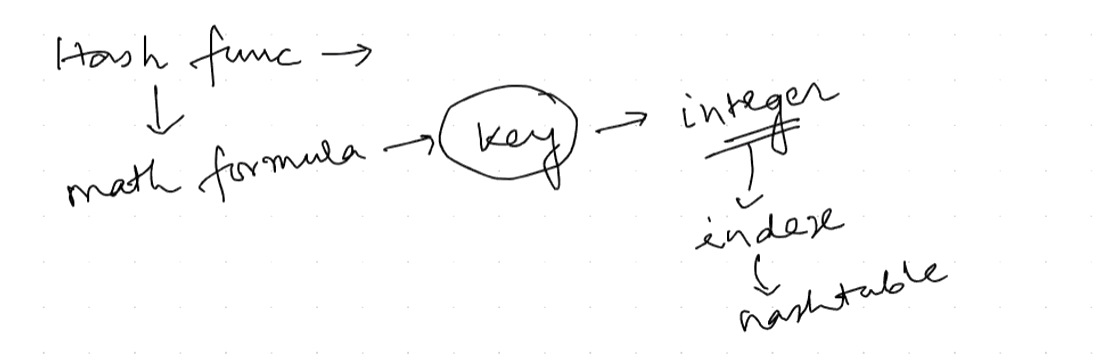 Hash func →
math formula → key → integer
index
hashtable